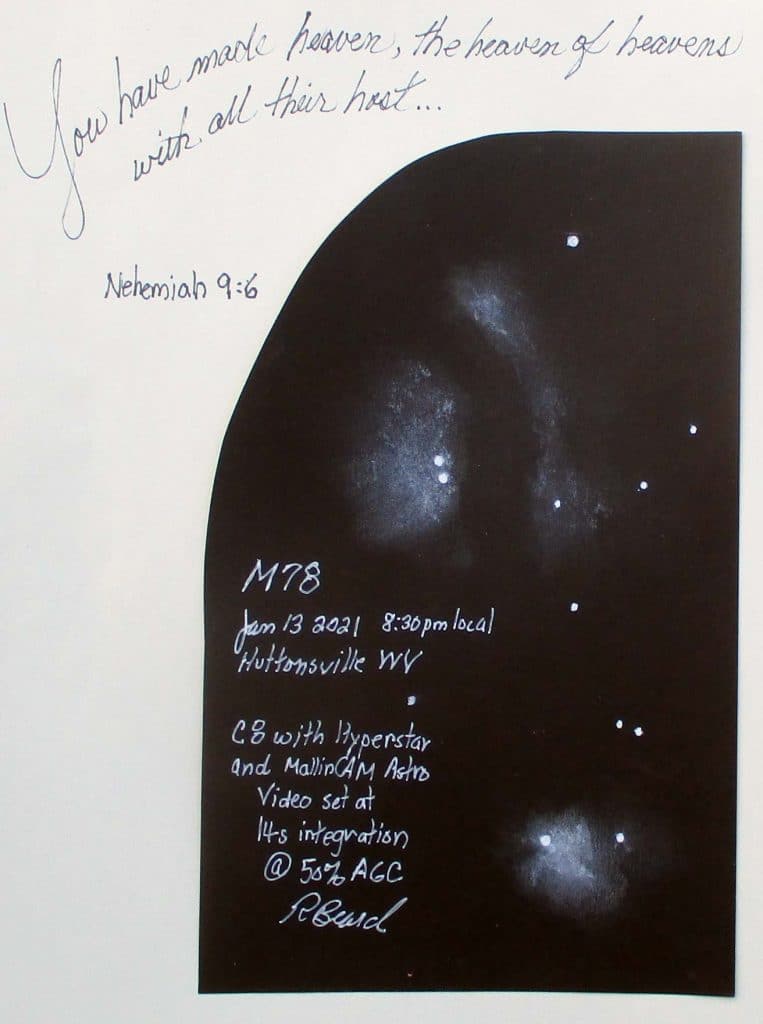 You have made heaven, the heaven of heavens
with all their host...
Nehemiah 9:6
M78
Jan 13 2021 8:30pm local
Huttonsville WV
C8 with Hyperstar
and MallinCAM Astro
Video set at
14s integration
@ 50% AGC
R Beard